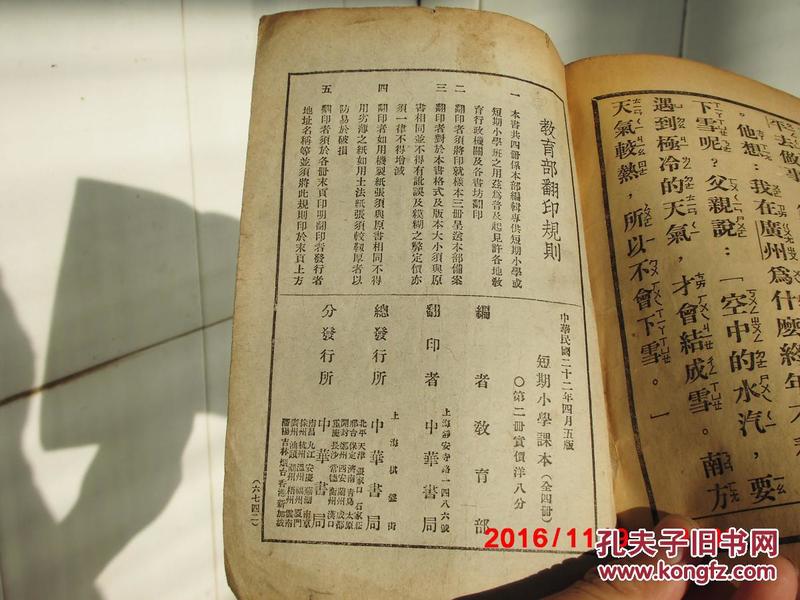 乍去做事
。他想：我在廣州爲什麼終年不
下雪呢？父親說：「空中的水汽，要
遇到極冷的天氣，才會結成雪。南方
天氣較熱，所以不會下雪。」
教育部翻印規則
一 本書共四冊係本部編輯專供短期小學或
短期小學班之用茲爲普及起見許各地敎
育行政機關及各書坊翻印
二 翻印者須將印就樣本三冊呈送本部備案
三 翻印者對於本書格式及版本大小須與原
書相同並不得有訛誤及糢糊之弊定價亦
須一律不得增減
四 翻印者如用機製紙張須與原書相同不得
用劣薄之紙如用土法紙張須較靱厚者以
防易於破損
五 翻印者須於各冊末頁印明翻印者發行者
地址名稱等並須將此規則印於末頁上方
中華民國二十二年四月五版
短期小學課本（全四冊）
〇第二冊實價洋八分
編者 敎育部
上海靜安寺路一四八六號
翻印者 中華書局
上海棋盤街
總發行所 中華書局
分發行所 中華書局
北平 天津 張家口 石家莊
邢台 保定 濟南 青島 太原
開封 鄭州 西安 蘭州 成都
重慶 長沙 常德 衡州 漢口
南昌 九江 安慶 蕪湖 南京
徐州 杭州 溫州 福州 廈門
廣州 汕頭 潮州 梧州 雲南
瀋陽 吉林 煙台 香港 新加坡
（六七四二）
2016/11
孔夫子旧书网
www.kongfz.com